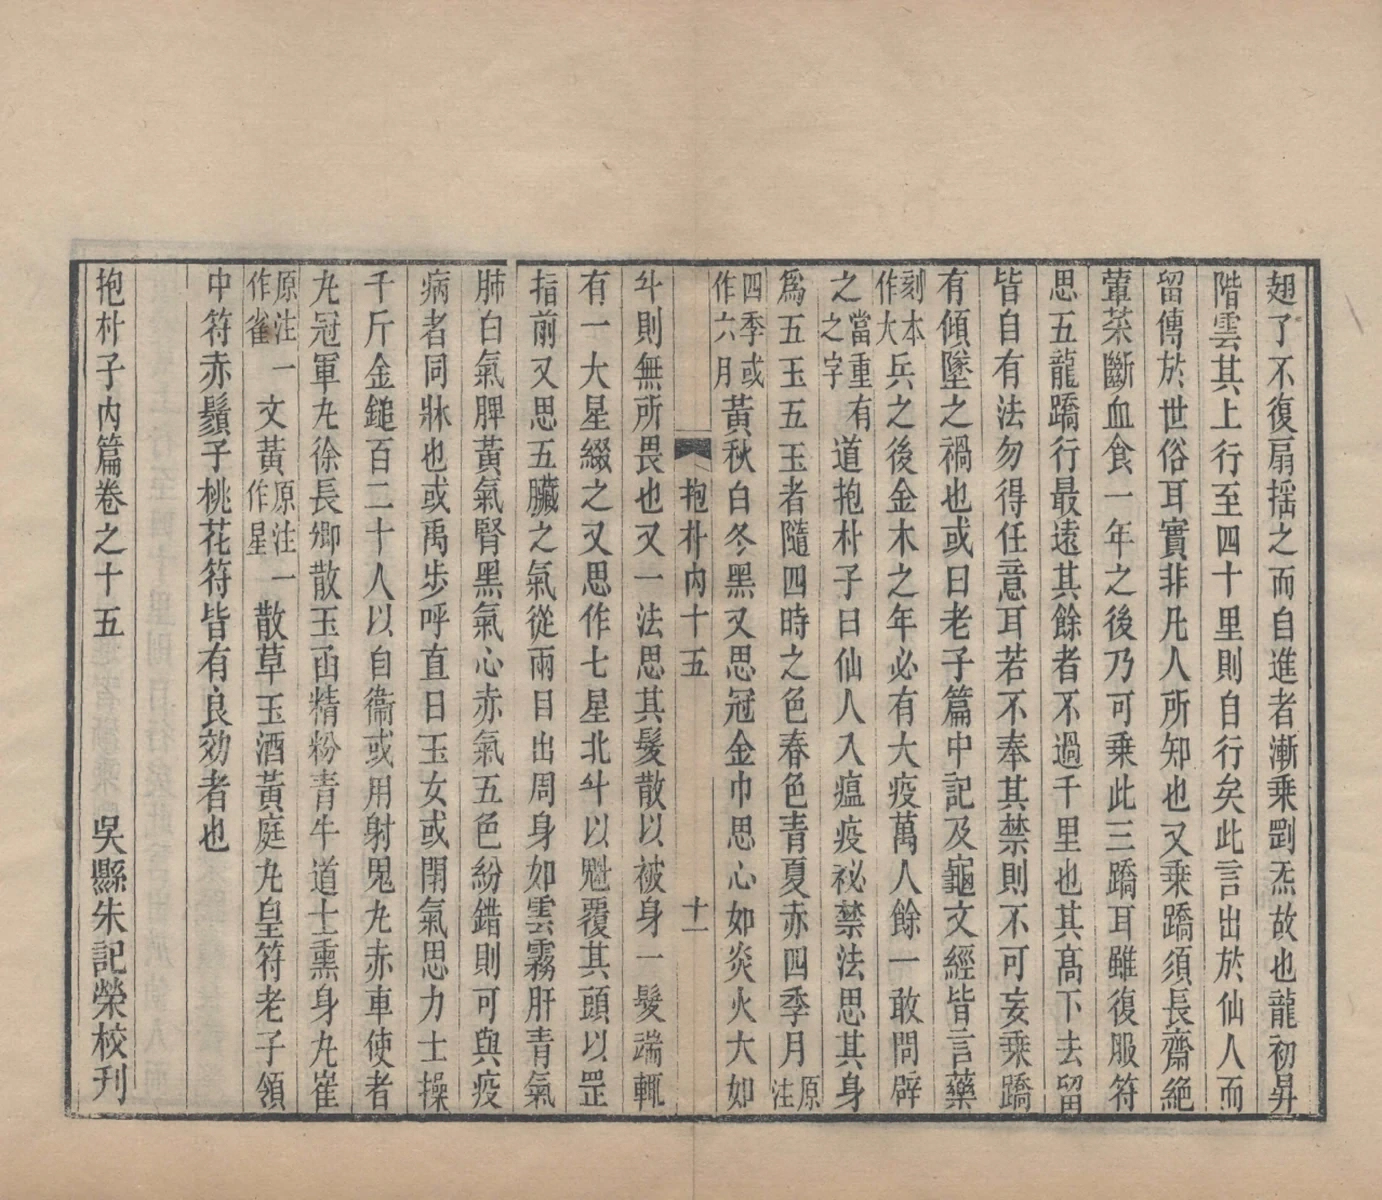 翅了不復扇揺之而自進者漸乘罡炁故也龍初昇
階雲其上行至四十里則自行矣此言出於仙人而
留傳於世俗耳實非凡人所知也又乘蹻須長齋絶
葷菜斷血食一年之後乃可乘此三蹻耳雖復服符
思五龍蹻行最遠其餘者不過千里也其高下去留
皆自有法勿得任意耳若不奉其禁則不可妄乘蹻
有傾墜之禍也或曰老子篇中記及龜文經皆言藥
刻本作大兵之後金木之年必有大疫萬人餘一敢問辟
之當重有之字道抱朴子曰仙人入瘟疫祕禁法思其身
爲五玉五玉者隨四時之色春色青夏赤四季月原注
四季或作六月黃秋白冬黑又思冠金巾思心如炎火大如
抱朴内十五 十一
斗則無所畏也又一法思其髮散以被身一髮端輒
有一大星綴之又思作七星北斗以魁覆其頭以罡
指前又思五臟之氣從兩目出周身如雲霧肝青氣
肺白氣脾黃氣腎黑氣心赤氣五色紛錯則可與疫
病者同牀也或禹步呼直日玉女或閉氣思力士操
千斤金鎚百二十人以自衞或用射鬼丸赤車使者
丸冠軍丸徐長卿散玉函精粉青牛道士熏身丸崔
原注一作雀文黃原注一作星散草玉酒黃庭丸皇符老子領
中符赤鬚子桃花符皆有良効者也
抱朴子内篇卷之十五 吳縣朱記榮校刊